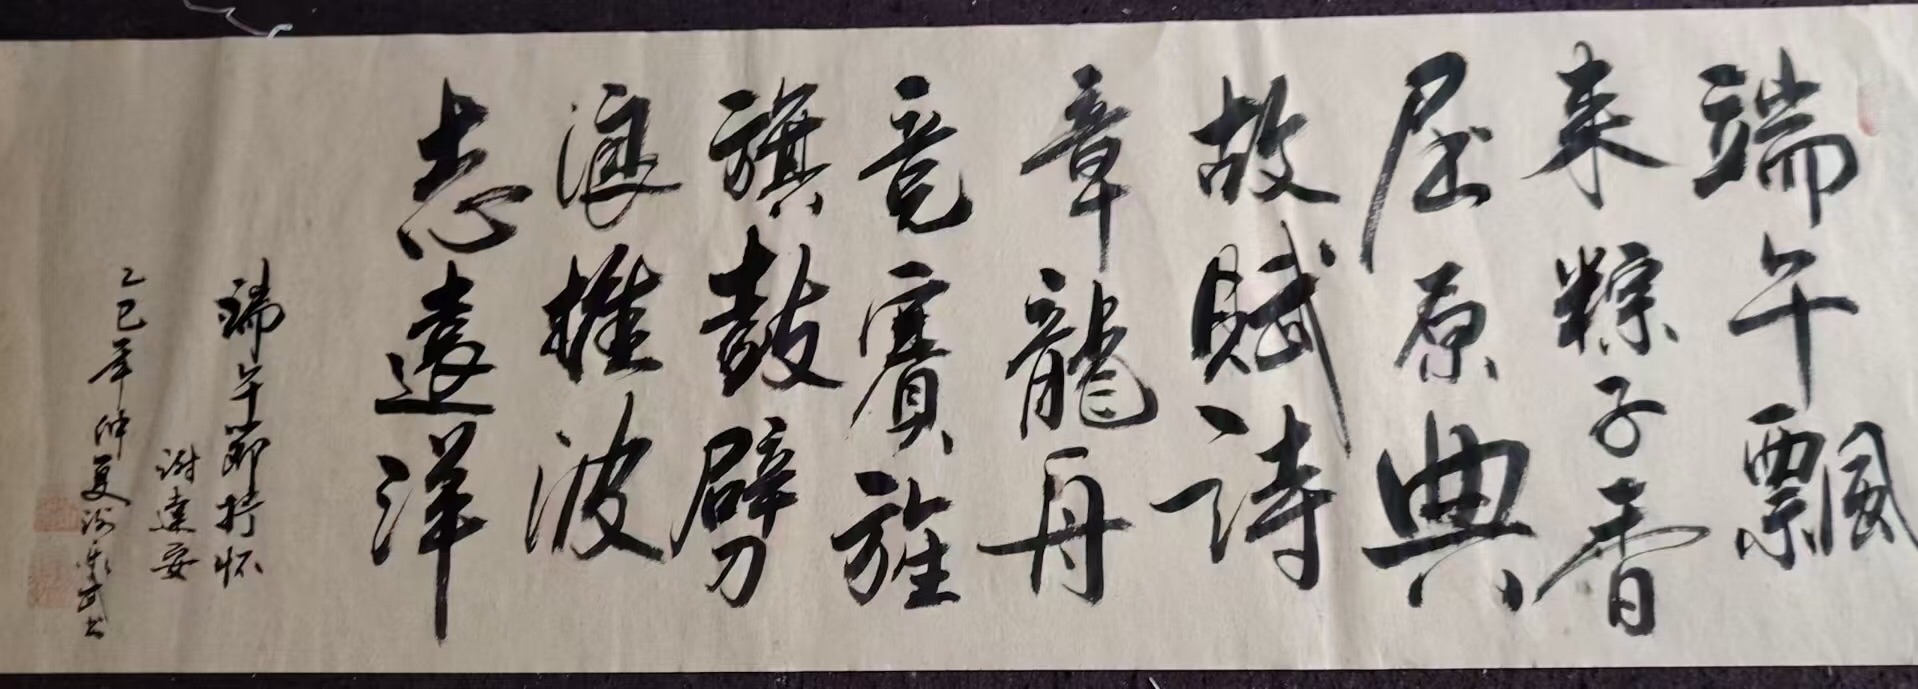 端午飄
来粽子香
屈原典
故賦詩
章龍舟
竞賽旌
旗鼓劈
推波
志遠洋
端午節抒怀
谢達安
乙巳年仲夏